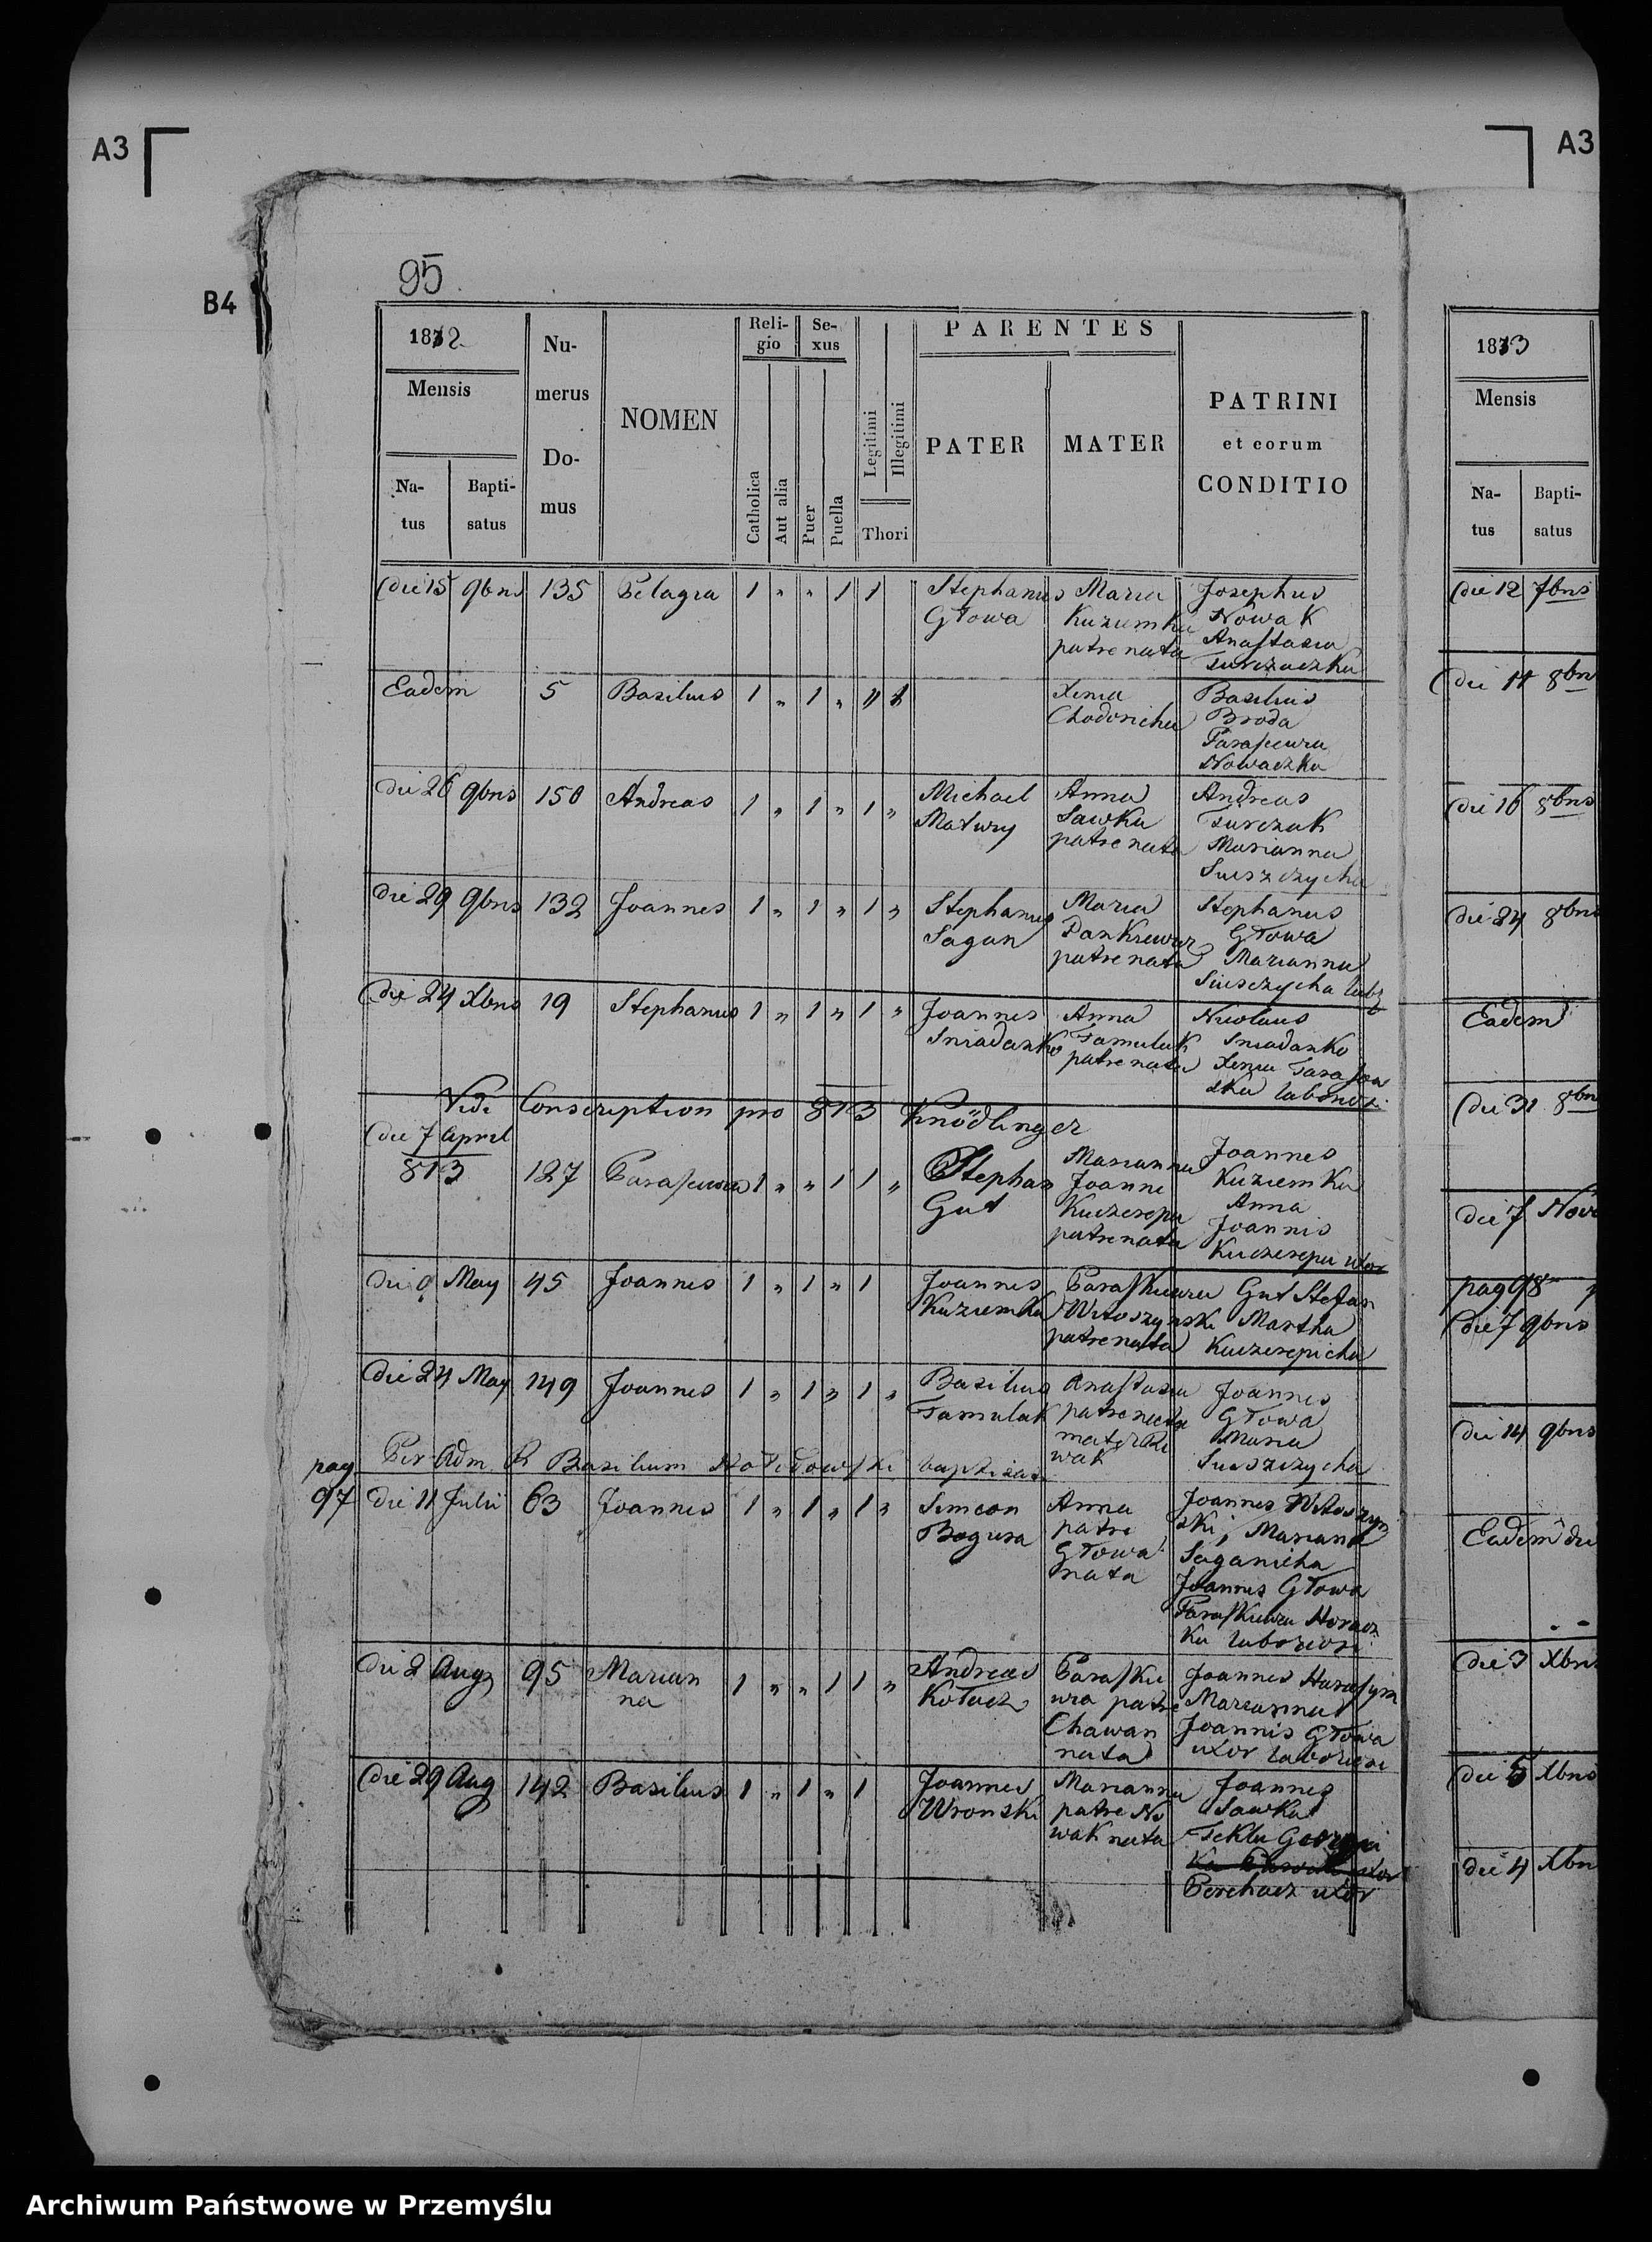 A3
A3
B4
95
1812
Mensis
Na-
tus
Bapti-
satus
Nu-
merus
Do-
mus
NOMEN
Reli-
gio
Catholica
Aut alia
Se-
xus
Puer
Puella
Legitimi
Illegitimi
Thori
PARENTES
PATER
MATER
PATRINI
et eorum
CONDITIO
die 15 9bris 135 Pelagia 1 " " 1 1 Stephanus Maria Josephus
Głowa Kuziemka Nowak
patre nata Anastasia
Turczaczka
Eadem 5 Basilius 1 " 1 " 1 Xenia Basilius
Chodoricha Broda
Parascewia
Nowaczka
die 26 9bris 150 Andreas 1 " 1 " 1 " Michael Anna Andreas
Matwiy Sawka Turczak
patre nata Marianna
Suszczycha
die 29 9bris 132 Joannes 1 " 1 " 1 " Stephanus Maria Stephanus
Sagan Głowa
patre nata Marianna
Suszczycha
die 24 Xbris 19 Stephanus 1 " 1 " 1 " Joannes Anna Nicolaus
Sniadanko Tamulak Sniadanko
patre nata Xenia
Vidi Conscription pro 813 Knödlinger
die 7 April
813 127 Parascewia 1 " " 1 1 " Stephan Marianna Joannes
Gut Joanne Kuziemka
Kuczerepa Anna
patre nata Joannis
Kuczerepa uxor
die 9 May 45 Joannes 1 " 1 " 1 Joannes Paraskiewia Gut Stefan
Kuziemka Witoszynski Martha
patre nata Kuczerepicha
die 24 May 149 Joannes 1 " 1 " 1 " Basilius Anastasia Joannes
Tamulak patre nata Głowa
Maria
wak Suszczycha
Per Adm R Basilium baptisat
pag
97 die 11 Julii 63 Joannes 1 " 1 " 1 " Simeon Anna Joannes Witoszyn
Bogusa patre ski, Mariana
Głowa Saganicha
nata Joannes Głowa
Paraskiewia
die 2 Aug 95 Marian 1 " " 1 1 " Andreas Paraskie Joannes Harasym
na Kołacz wia patre Marianna
Chawan Joannis Głowa
nata uxor
die 29 Aug 142 Basilius 1 " 1 " 1 Joannes Marianna Joannes
Wronski patre No Sawka
wak nata Tekla
Perehacz uxor
1813
Mensis
Na-
tus
Bapti-
satus
die 12 7bris
die 11 8br
die 16 8bris
die 24 8bris
Eadem
die 31 8br
die 7 Nov
pag 98
die 7 9bris
die 14 9bris
Eadem die
die 3 Xbris
die 5 Xbris
die 4 Xbr
Archiwum Państwowe w Przemyślu